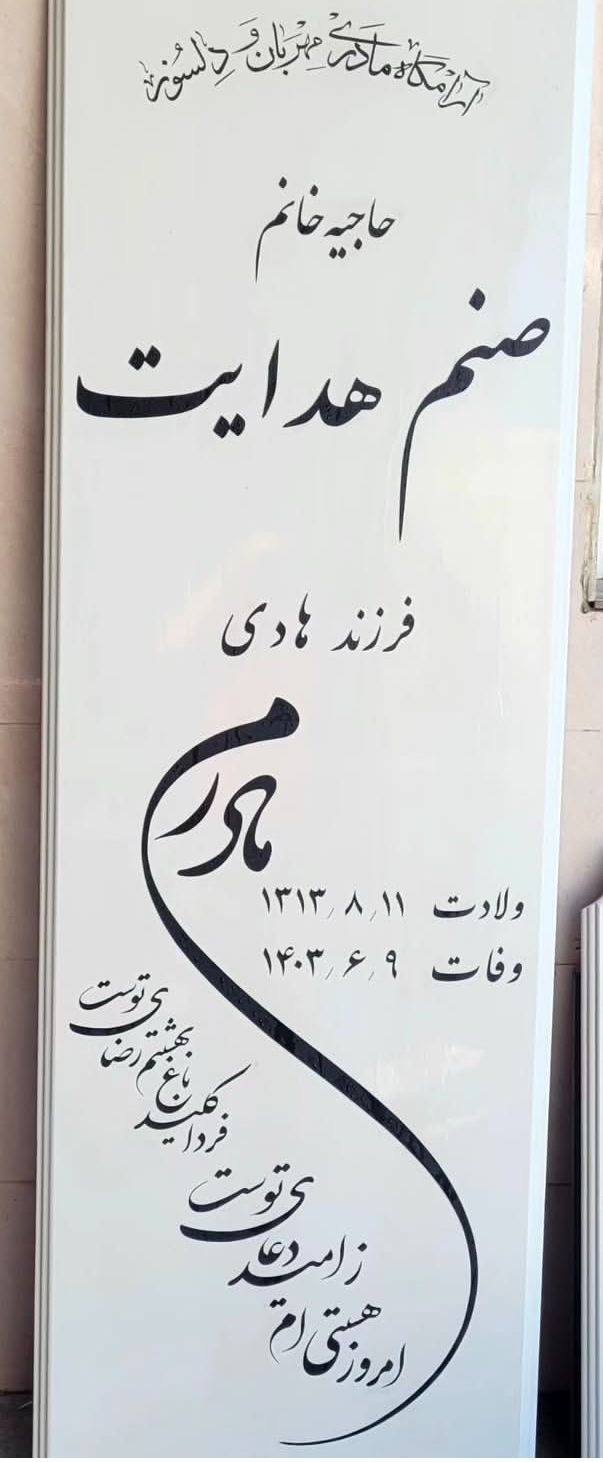 آرامگاه مادری مهربان و دلسوز
حاجیه خانم
صنم هدایت
فرزند هادی
مادرم
ولادت ۱۳۱۳/۸/۱۱
وفات ۱۴۰۳/۶/۹
امروز هستی ام
ز امید دعای توست
فردا کلید
باغ بهشتم رضای توست